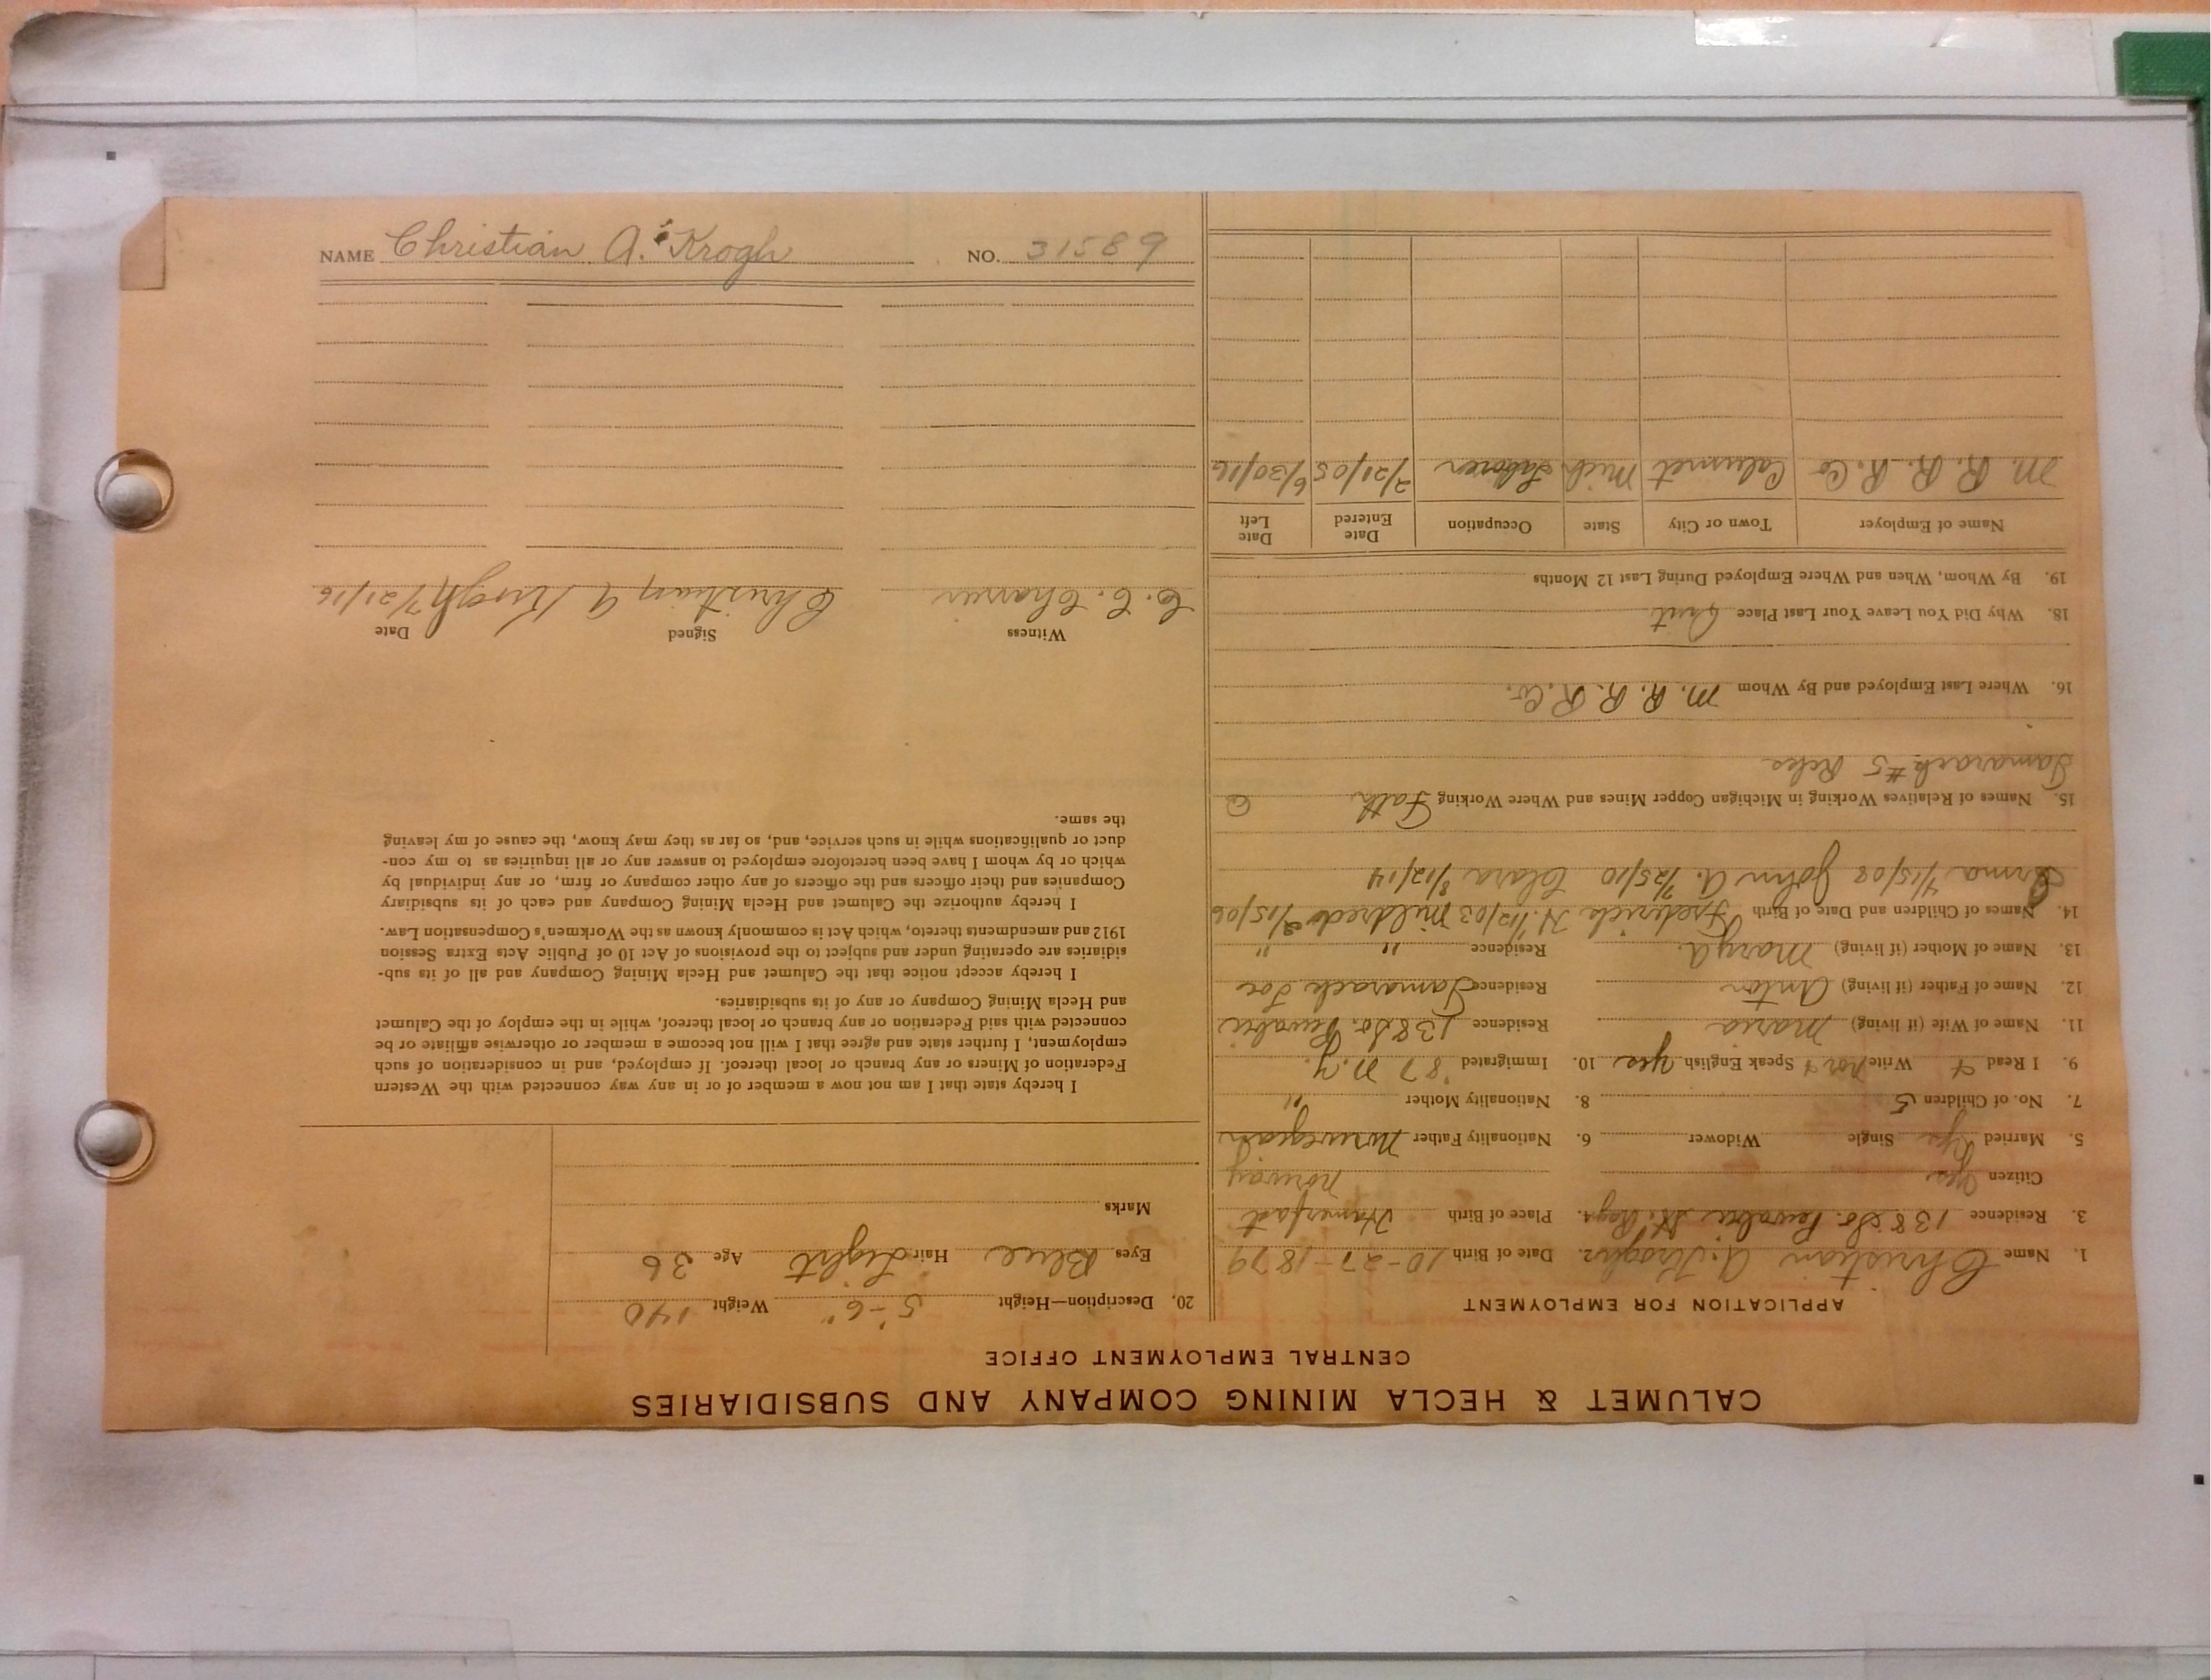 NAME Christian A. Krogh NO. 31589
CALUMET & HECLA MINING COMPANY AND SUBSIDIARIES
CENTRAL EMPLOYMENT OFFICE
APPLICATION FOR EMPLOYMENT
1. Name Christian A. Krogh 2. Date of Birth 10-27-1879
3. Residence 138 So. Pewabic St. 4. Place of Birth Hamerfast
Citizen Yes Norway
5. Married Yes Single Widower 6. Nationality Father Norwegian
7. No. of Children 5 8. Nationality Mother "
9. I Read + Write Nor + Speak English Yes 10. Immigrated '87 N.Y.
11. Name of Wife (if living) Maria Residence 138 So. Pewabic
12. Name of Father (if living) Anton Residence Tamarack Loc
13. Name of Mother (if living) Mary A. Residence " "
14. Names of Children and Date of Birth Frederick H. 1/12/03 Mildred 2/15/06
Erma 4/15/08 John A. 9/25/10 Clara 8/12/14
15. Names of Relatives Working in Michigan Copper Mines and Where Working Fath
Tamarack #5
16. Where Last Employed and By Whom M. R. R. R. Co.
18. Why Did You Leave Your Last Place Quit
19. By Whom, When and Where Employed During Last 12 Months
Name of Employer Town or City State Occupation Date Entered Date Left
M. R. R. R. Co Calumet Mich Laborer 2/21/05 6/30/16
20. Description—Height 5'-6" Weight 140
Eyes Blue Hair Light Age 36
Marks
I hereby state that I am not now a member of or in any way connected with the Western
Federation of Miners or any branch or local thereof. If employed, and in consideration of such
employment, I further state and agree that I will not become a member or otherwise affiliate or be
connected with said Federation or any branch or local thereof, while in the employ of the Calumet
and Hecla Mining Company or any of its subsidiaries.
I hereby accept notice that the Calumet and Hecla Mining Company and all of its sub-
sidiaries are operating under and subject to the provisions of Act 10 of Public Acts Extra Session
1912 and amendments thereto, which Act is commonly known as the Workmen's Compensation Law.
I hereby authorize the Calumet and Hecla Mining Company and each of its subsidiary
Companies and their officers and the officers of any other company or firm, or any individual by
which or by whom I have been heretofore employed to answer any or all inquiries as to my con-
duct or qualifications while in such service, and, so far as they may know, the cause of my leaving
the same.
Witness Signed Date
C. C. Christian A Krogh 7/21/16